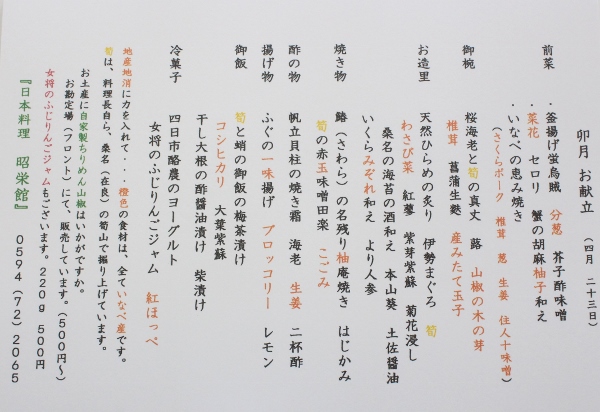 卯月 お献立
(四月 二十三日)
前菜 ・釜揚げ蛍烏賊 分葱 芥子酢味噌
・菜花 セロリ 蟹の胡麻柚子和え
・いなべの恵み焼き
(さくらポーク 椎茸 葱 生姜 住人十味噌)
御椀 桜海老と筍の真丈 蕗 山椒の木の芽
椎茸 菖蒲生麩 産みたて玉子
お造里 天然ひらめの炙り 伊勢まぐろ 筍
わさび菜 紅蓼 紫芽紫蘇 菊花浸し
桑名の海苔の酒和え 本山葵 土佐醤油
いくらみぞれ和え より人参
焼き物 鰆(さわら)の名残り柚庵焼き はじかみ
筍の赤玉味噌田楽 こごみ
酢の物 帆立貝柱の焼き霜 海老 生姜 二杯酢
揚げ物 ふぐの一味揚げ ブロッコリー レモン
御飯 筍と蛸の御飯の梅茶漬け
コシヒカリ 大葉紫蘇
干し大根の酢醤油漬け 柴漬け
冷菓子 四日市酪農のヨーグルト
女将のふじりんごジャム 紅ほっぺ
地産地消に力を入れて・・・橙色の食材は、全ていなべ産です。
筍は、料理長自ら、桑名(在良)の筍山で掘り上げています。
お土産に自家製ちりめん山椒はいかがですか。
お勘定場(フロント)にて、販売しています。(500円~)
女将のふじりんごジャムもございます。220g 500円
『日本料理 昭栄館』 0594(72)2065